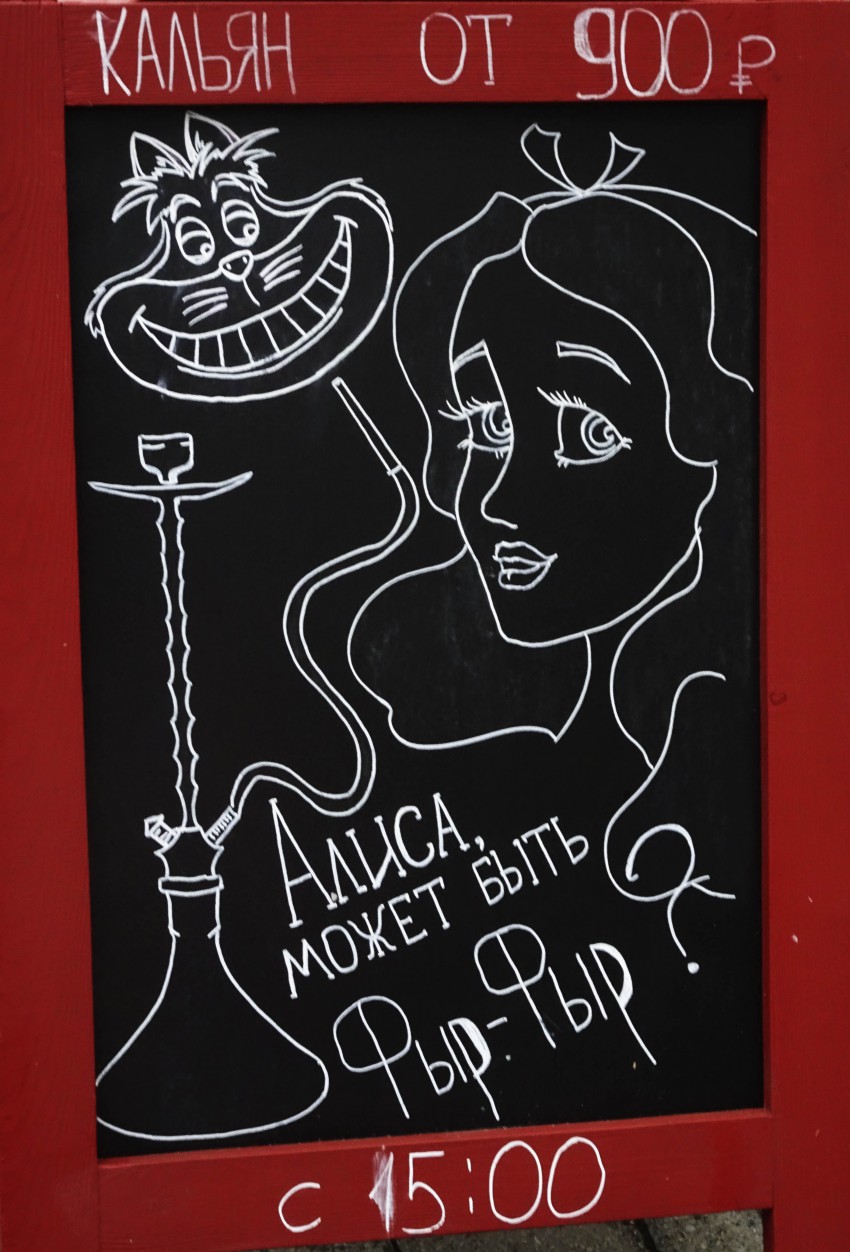 КАЛЬЯН ОТ 900 ₽
АЛИСА,
МОЖЕТ БЫТЬ
ФЫР-ФЫР?
С 15:00